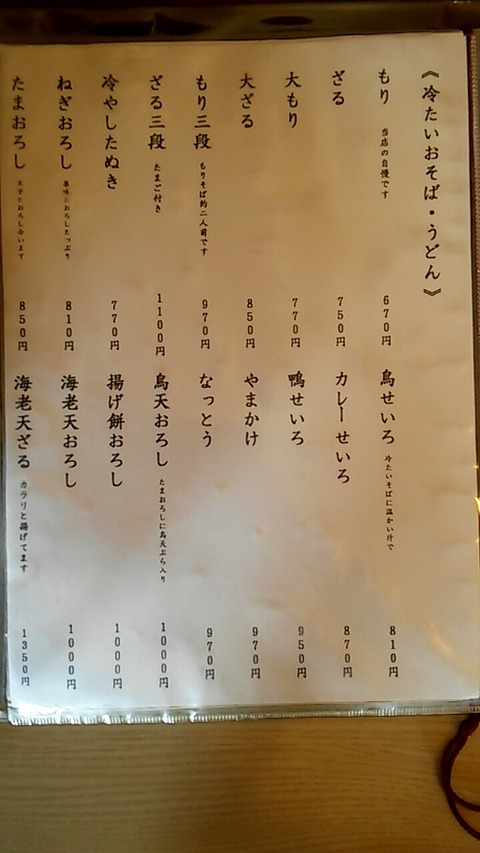 《冷たいおそば・うどん》
もり 当店の自慢です 670円
ざる 750円
大もり 770円
大ざる 850円
もり三段 もりそば約二人前です 970円
ざる三段 たまご付き 1100円
冷やしたぬき 770円
ねぎおろし 薬味とおろしたっぷり 810円
たまおろし 玉子とおろし合います 850円
鳥せいろ 冷たいそばに温かい汁で 810円
カレーせいろ 870円
鴨せいろ 950円
やまかけ 970円
なっとう 970円
鳥天おろし たまおろしに鳥天ぷら入り 1000円
揚げ餅おろし 1000円
海老天おろし 1000円
海老天ざる カラリと揚げてます 1350円